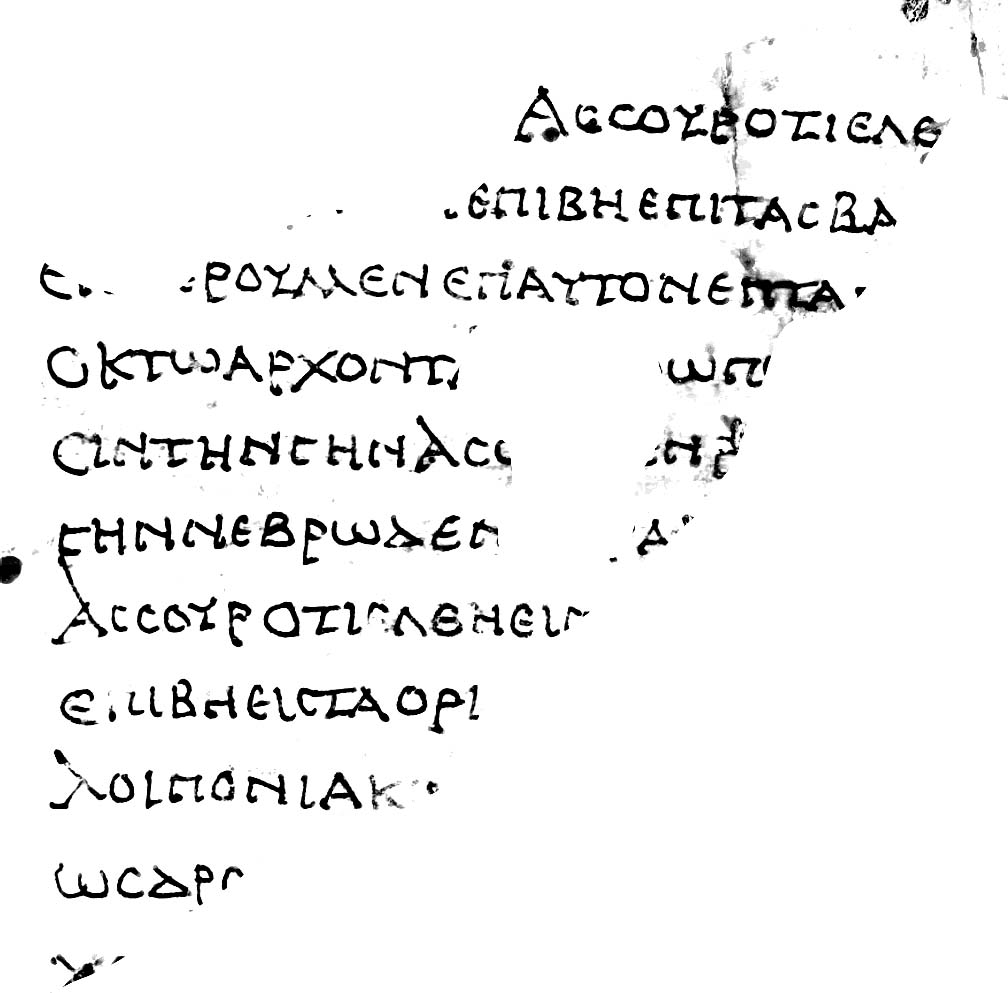 ΑϹϹΟΥΡΟΤΙΕΛΘ
ΕΠΙΒΗΕΠΙΤΑϹΒΑ
Ε ΡΟΥΜΕΝΕΠΑΥΤΟΝΕΠΤΑ
ΟΚΤΩΑΡΧΟΝΤ ΩΠ
ϹΙΝΤΗΝΓΗΝΑϹϹ ΝΡ
ΓΗΝΝΕΒΡΩΔΕΝ Α
ΑϹϹΟΥΡΟΤΙΕΛΘΗΕΙϹ
ΕΠΙΒΗΕΙϹΤΑΟΡΙ
ΛΟΙΠΟΝΙΑΚ
ΩϹΔΡΟ